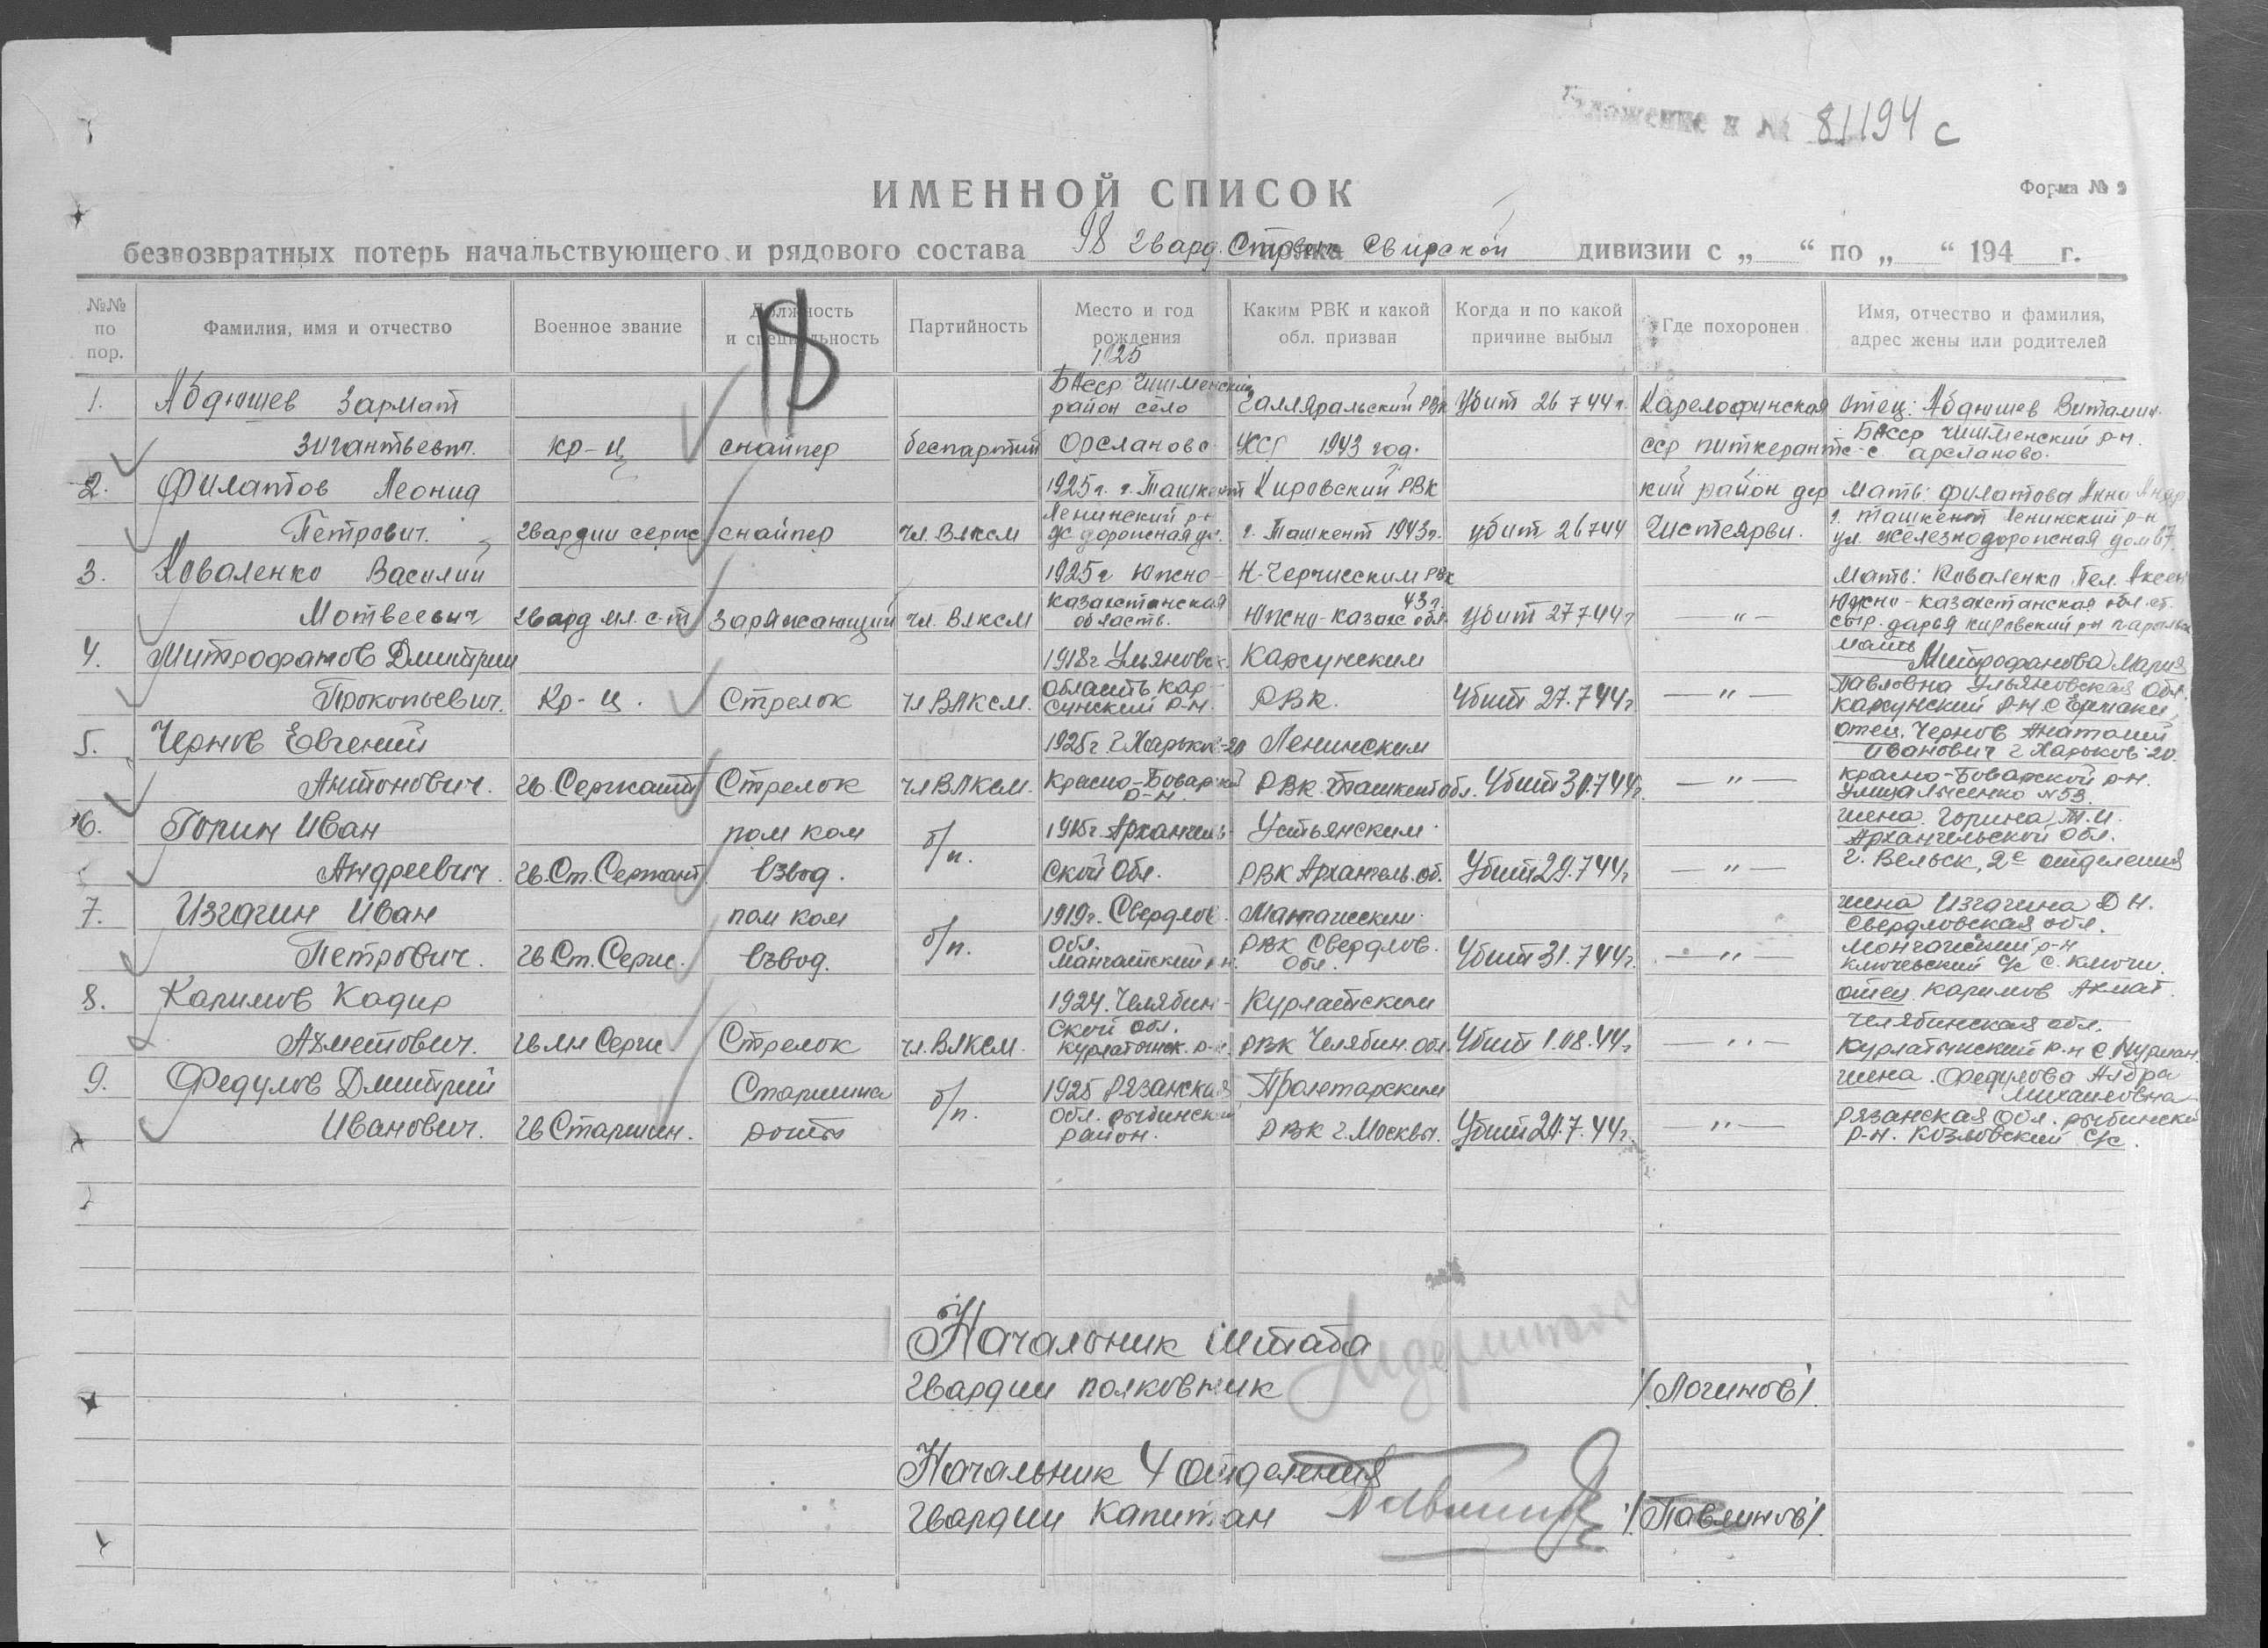 81194 с
ИМЕННОЙ СПИСОК
Форма №
безвозвратных потерь начальствующего и рядового состава 98 гвард. Свирской дивизии с „ “ по „ “ 194 г.
№№ по пор. Фамилия, имя и отчество Военное звание Должность и специальность Партийность Место и год рождения Каким РВК и какой обл. призван Когда и по какой причине выбыл Где похоронен Имя, отчество и фамилия, адрес жены или родителей
1925
БАсср Чишменский
1. Абдюшев Зармат район село Галляральский РВК Убит 26 7 44 г. Карелофинская отец: Абдюшев
кр-ц снайпер беспартий Орсланово УССР 1943 год. сср питкерантс БАсср чишменский р-н.
с арсланово.
2. Филатов Леонид 1925 г. г. Ташкент Кировский РВК кий район дер Мать: Филатова Анна
Петрович. Гвардии серж снайпер чл. Влксм Ленинский р-н г. Ташкент 1943г. убит 26 7 44 г. Ташкент Ленинский р-н
ул. железнодорожная дом 67.
3. Коваленко Василий 1925 г Южно- Н-Черчисским РВК Мать: Коваленко Пел.
43 г.
Мотвеевич Гвард мл. с-т Заряжающий чл. Влксм казахстанская область. Южно-казах обл. Убит 27 7 44 г — " — Южно-казахстанская обл. ст.
сыр. дарья кировский р-н
4. Митрофанов Дмитрий 1918г Ульяновск. Карсунским мать Митрофанова Мария
Прокопьевич. Кр-ц. Стрелок чл ВЛКСМ. область, кар- сунский р-н. РВК. Убит 27.7 44 г — " — Павловна Ульяновская Обл.
карсунский р-н с Ермаки
5. Чернов Евгений 1925г. г Харьков-20 Ленинским отец. Чернов Анатолий
Иванович г Харьков-20.
Антонович. Гв. Сержант Стрелок чл ВЛКСМ. Красно-Баварский р-н. РВК Ташкент обл. Убит 30.7 44 г. — " — красно-Баварской р-н.
улица Лысенко №53.
6. Горин Иван пом ком б/п. 1915г. Архангель- Устьянским жена. Горина М.И.
Архангельской обл.
Андреевич. Гв. Ст. Сержант взвод. ской Обл. РВК Архангель. об. Убит 29.7 44 г — " — г. Вельск, 2е отделения
7. Изгагин Иван пом ком б/п. 1919г. Свердлов. Манчашским жена Изгагина Д Н.
Свердловская обл.
Петрович. Гв Ст. Серж. взвод. обл. Манчашский р-н. РВК Свердлов. Обл. Убит 31.7 44 г. — " — р-н
ключевский с/с с. Ключи.
8. Каримов Кадир 1924. Челябин- отец Каримов Ахмат.
Челябинская обл.
Ахметович. Гв мл Серж Стрелок чл. ВЛКСМ. ской обл. РВК Челябин. обл Убит 1.08.44 г — " — р-н с.
9. Федулов Дмитрий Старшина б/п. 1925 Рязанская Пролетарским жена. Федулова
Михайловна
Иванович. Гв Старшин. роты обл. рыбинский район. РВК г. Москвы. Убит 7.44 г. — " — Рязанская обл. рыбинский
р-н. Козловский с/с.
Начальник штаба
гвардии полковник /Логинов/.
Начальник 4 отделения
гвардии капитан /Павлинов/.